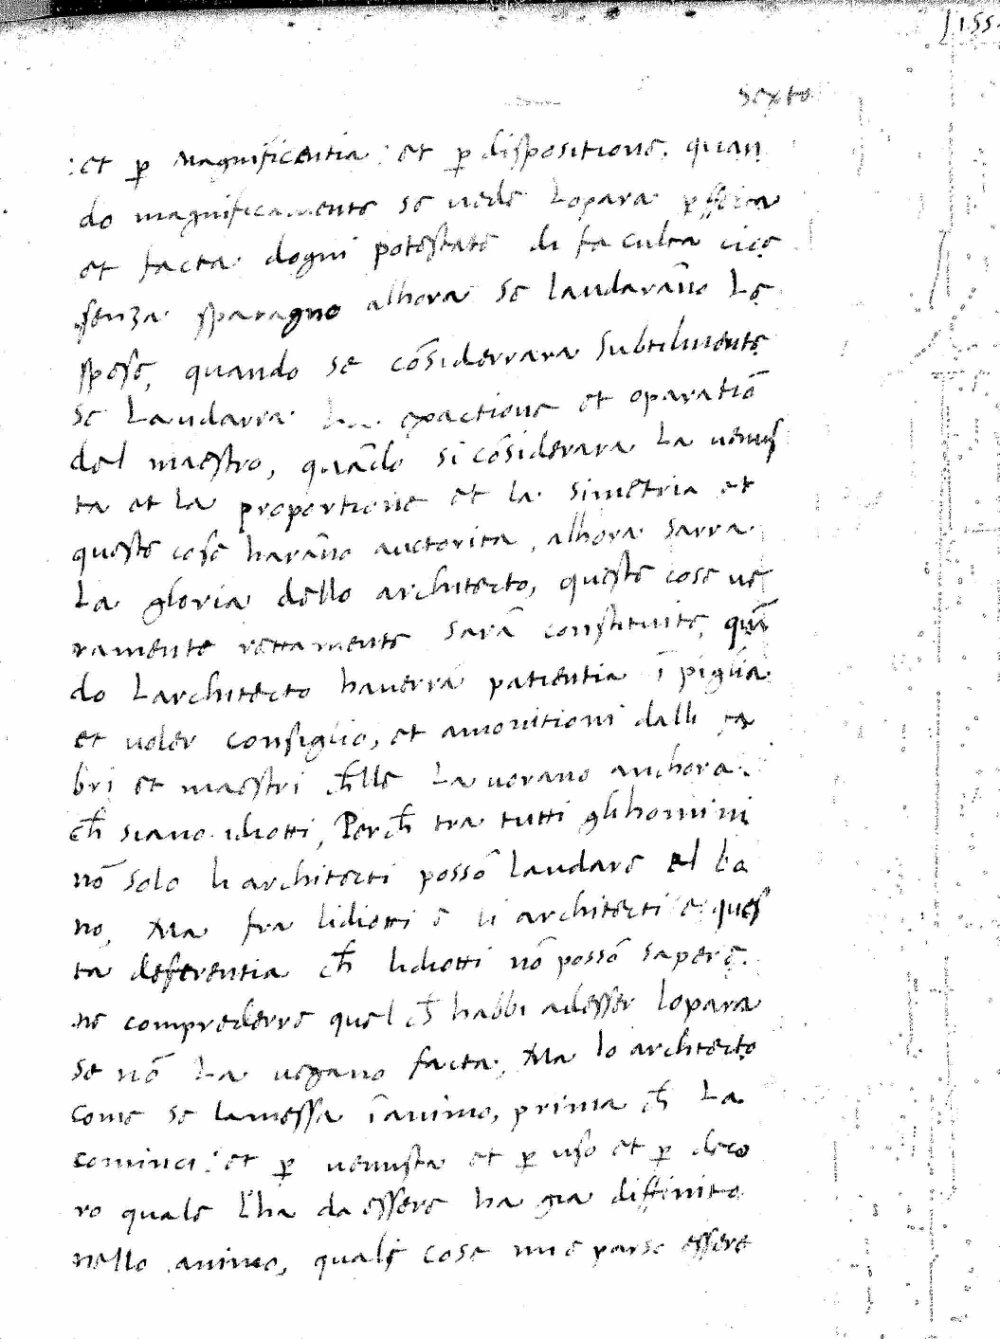 155
Sexto
: et ꝑ magnificentia : et ꝑ dispositione, quan
do magnificamente se vede Lopara ꝑffecta
et facta dogni potestate di faculta cioe
senza sparagno alhora se laudarāno Le
spese, quando se cōsiderrara subtilmente
se Laudarra La exactione et oparatiō
del maestro, quādo si cōsiderara La venus
ta et La proportione et la simetria et
queste cose harāno auctorita, alhora sarra
La gloria dello architecto, queste cose ve
ramente rettamente sarā constituite, quā
do Larchitecto haverra patientia ī piglia
et voler consiglio, et amonitioni dalli fa
bri et maestri ch̄lle Lavorano anchora
ch̄ siano idiotti, Perch̄ tra tutti glihomini
nō solo li architecti possō laudare el bo
no, Ma fra lidiotti e li architecti e ques
ta deferentia ch̄ lidiotti nō possō sapere
ne comprederre quel ch̄ habbi adesser lopara
se nō La vegano facta, Ma lo architecto
come se lamessa īanimo, prima ch̄ La
cominci : et ꝑ venusta et ꝑ uso et ꝑ deco
ro quale L'ha da essere ha gia diffinito
nello animo, quale cose mie parso essere